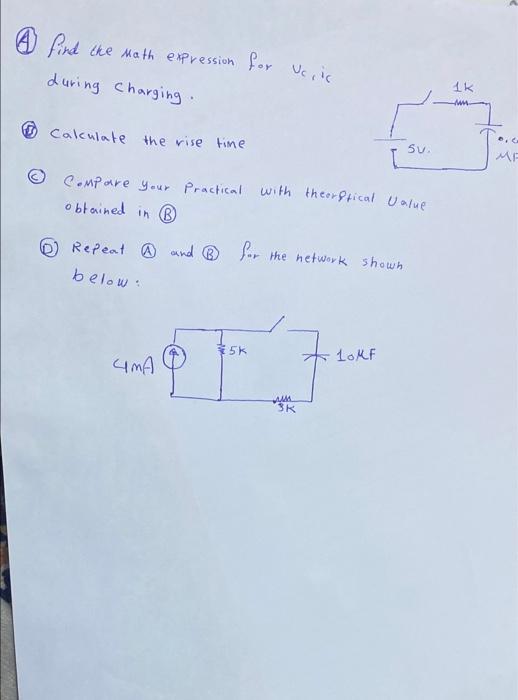 Ⓐ find the Math expression for Vc, ic
during Charging.
1K
5V.
Ⓑ Calculate the rise time
Ⓒ Compare your Practical with theorptical Value
obtained in Ⓑ
Ⓓ Repeat Ⓐ and Ⓑ for the network shown
below:
4mA
5K
10MF
3K